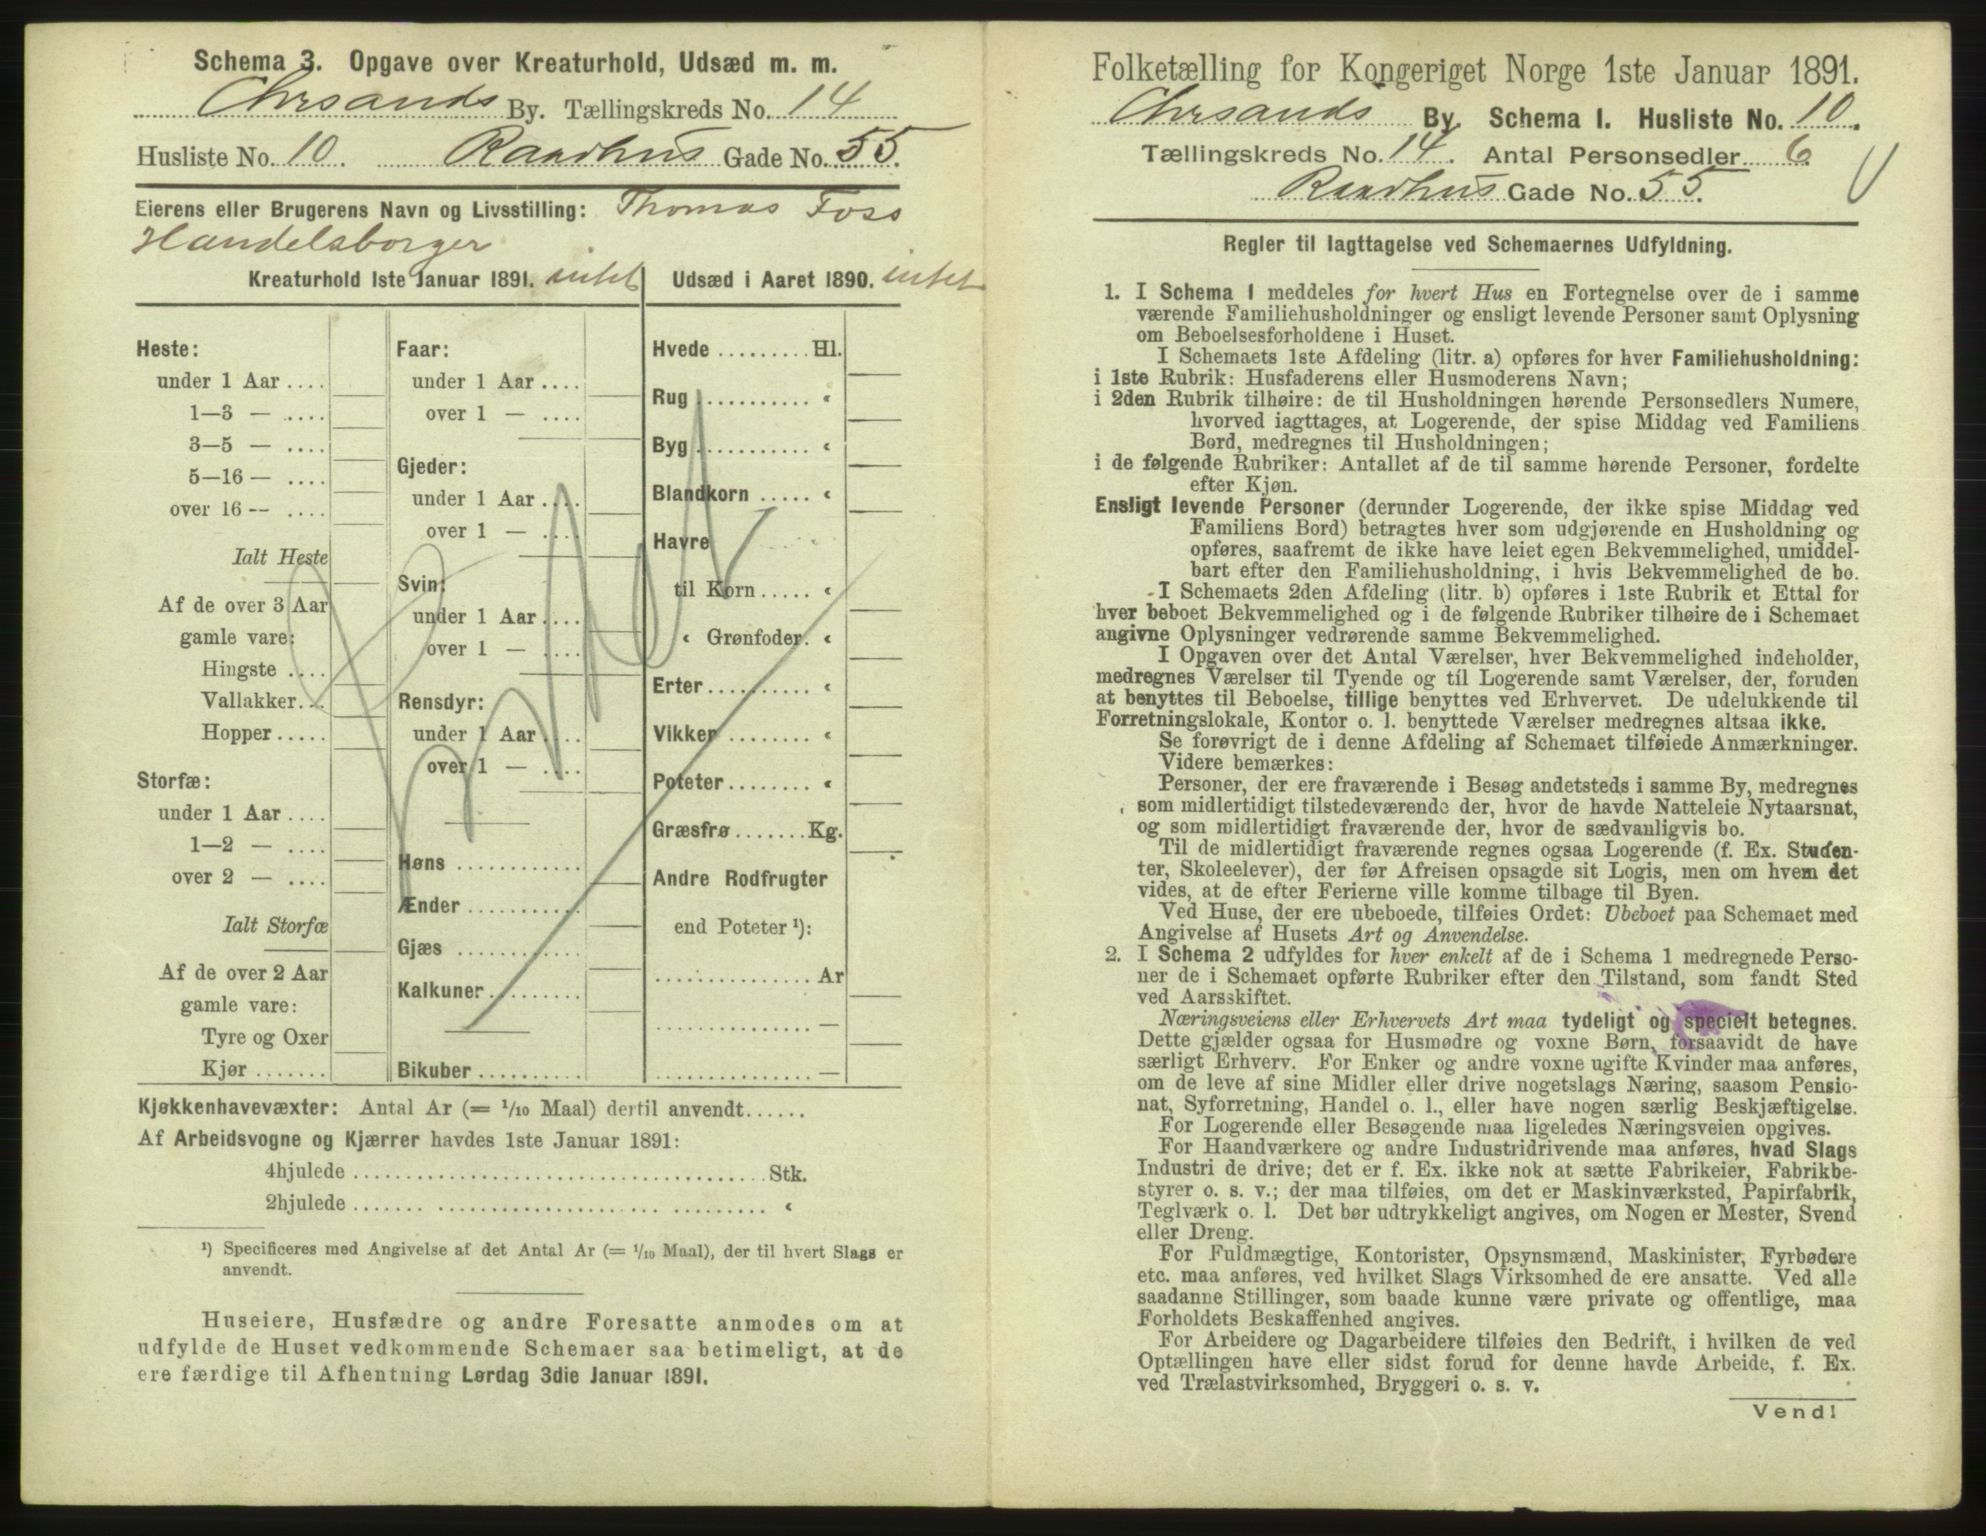 Schema 3. Opgave over Kreaturhold, Udsæd m. m.
Chrsands By. Tællingskreds No. 14
Husliste No. 10. Raadhus Gade No. 55.
Eierens eller Brugerens Navn og Livsstilling: Thomas Foss
Handelsborger
Kreaturhold 1ste Januar 1891. intet
Heste:
under 1 Aar ....
1—3 — ....
3—5 — ....
5—16 — ....
over 16 -- ....
Ialt Heste
Af de over 3 Aar
gamle vare:
Hingste ....
Vallakker...
Hopper.....
Storfæ:
under 1 Aar ....
1—2 — ....
over 2 — ....
Ialt Storfæ
Af de over 2 Aar
gamle vare:
Tyre og Oxer
Kjør .......
Faar:
under 1 Aar ....
over 1 — ....
Gjeder:
under 1 Aar ....
over 1 — ....
Svin:
under 1 Aar ....
over 1 — ....
Rensdyr:
under 1 Aar ....
over 1 — ....
Høns ..........
Ænder ..........
Gjæs ..........
Kalkuner.........
Bikuber ..........
Udsæd i Aaret 1890. intet
Hvede ......... Hl.
Rug .......... «
Byg .......... «
Blandkorn ..... «
Havre
til Korn ..... «
« Grønfoder. «
Erter......... «
Vikker ........ «
Poteter ........ «
Græsfrø ....... Kg.
Andre Rodfrugter
end Poteter ¹):
............... Ar
............... —
............... —
Kjøkkenhavevæxter: Antal Ar (= 1/10 Maal) dertil anvendt......
Af Arbeidsvogne og Kjærrer havdes 1ste Januar 1891:
4hjulede ..................................... Stk.
2hjulede ..................................... «
¹) Specificeres med Angivelse af det Antal Ar (= 1/10 Maal), der til hvert Slags er
anvendt.
Huseiere, Husfædre og andre Foresatte anmodes om at
udfylde de Huset vedkommende Schemaer saa betimeligt, at de
ere færdige til Afhentning Lørdag 3die Januar 1891.
Folketælling for Kongeriget Norge 1ste Januar 1891.
Chrsands By. Schema I. Husliste No. 10.
Tællingskreds No. 14. Antal Personsedler 6
Raadhus Gade No. 55.
Regler til Iagttagelse ved Schemaernes Udfyldning.
1. I Schema I meddeles for hvert Hus en Fortegnelse over de i samme
værende Familiehusholdninger og ensligt levende Personer samt Oplysning
om Beboelsesforholdene i Huset.
I Schemaets 1ste Afdeling (litr. a) opføres for hver Familiehusholdning:
i 1ste Rubrik: Husfaderens eller Husmoderens Navn;
i 2den Rubrik tilhøire: de til Husholdningen hørende Personsedlers Numere,
hvorved iagttages, at Logerende, der spise Middag ved Familiens
Bord, medregnes til Husholdningen;
i de følgende Rubriker: Antallet af de til samme hørende Personer, fordelte
efter Kjøn.
Ensligt levende Personer (derunder Logerende, der ikke spise Middag ved
Familiens Bord) betragtes hver som udgjørende en Husholdning og
opføres, saafremt de ikke have leiet egen Bekvemmelighed, umiddel-
bart efter den Familiehusholdning, i hvis Bekvemmelighed de bo.
I Schemaets 2den Afdeling (litr. b) opføres i 1ste Rubrik et Ettal for
hver beboet Bekvemmelighed og i de følgende Rubriker tilhøire de i Schemaet
angivne Oplysninger vedrørende samme Bekvemmelighed.
I Opgaven over det Antal Værelser, hver Bekvemmelighed indeholder,
medregnes Værelser til Tyende og til Logerende samt Værelser, der, foruden
at benyttes til Beboelse, tillige benyttes ved Erhvervet. De udelukkende til
Forretningslokale, Kontor o. l. benyttede Værelser medregnes altsaa ikke.
Se forøvrigt de i denne Afdeling af Schemaet tilføiede Anmærkninger.
Videre bemærkes:
Personer, der ere fraværende i Besøg andetsteds i samme By, medregnes
som midlertidigt tilstedeværende der, hvor de havde Natteleie Nytaarsnat,
og som midlertidigt fraværende der, hvor de sædvanligvis bo.
Til de midlertidigt fraværende regnes ogsaa Logerende (f. Ex. Studen-
ter, Skoleelever), der før Afreisen opsagde sit Logis, men om hvem det
vides, at de efter Ferierne ville komme tilbage til Byen.
Ved Huse, der ere ubeboede, tilføies Ordet: Ubeboet paa Schemaet med
Angivelse af Husets Art og Anvendelse.
2. I Schema 2 udfyldes for hver enkelt af de i Schema 1 medregnede Perso-
ner de i Schemaet opførte Rubriker efter den Tilstand, som fandt Sted
ved Aarsskiftet.
Næringsveiens eller Erhvervets Art maa tydeligt og specielt betegnes.
Dette gjælder ogsaa for Husmødre og voxne Børn, forsaavidt de have
særligt Erhverv. For Enker og andre voxne ugifte Kvinder maa anføres,
om de leve af sine Midler eller drive nogetslags Næring, saasom Pensio-
nat, Syforretning, Handel o. l., eller have nogen særlig Beskjæftigelse.
For Logerende eller Besøgende maa ligeledes Næringsveien opgives.
For Haandværkere og andre Industridrivende maa anføres, hvad Slags
Industri de drive; det er f. Ex. ikke nok at sætte Fabrikeier, Fabrikbe-
styrer o. s. v.; der maa tilføies, om det er Maskinværksted, Papirfabrik,
Teglværk o. l. Det bør udtrykkeligt angives, om Nogen er Mester, Svend
eller Dreng.
For Fuldmægtige, Kontorister, Opsynsmænd, Maskinister, Fyrbødere
etc. maa anføres, ved hvilket Slags Virksomhed de ere ansatte. Ved alle
saadanne Stillinger, som baade kunne være private og offentlige, maa
Forholdets Beskaffenhed angives.
For Arbeidere og Dagarbeidere tilføies den Bedrift, i hvilken de ved
Optællingen have eller sidst forud for denne havde Arbeide, f. Ex.
ved Trælastvirksomhed, Bryggeri o. s. v.
Vend!